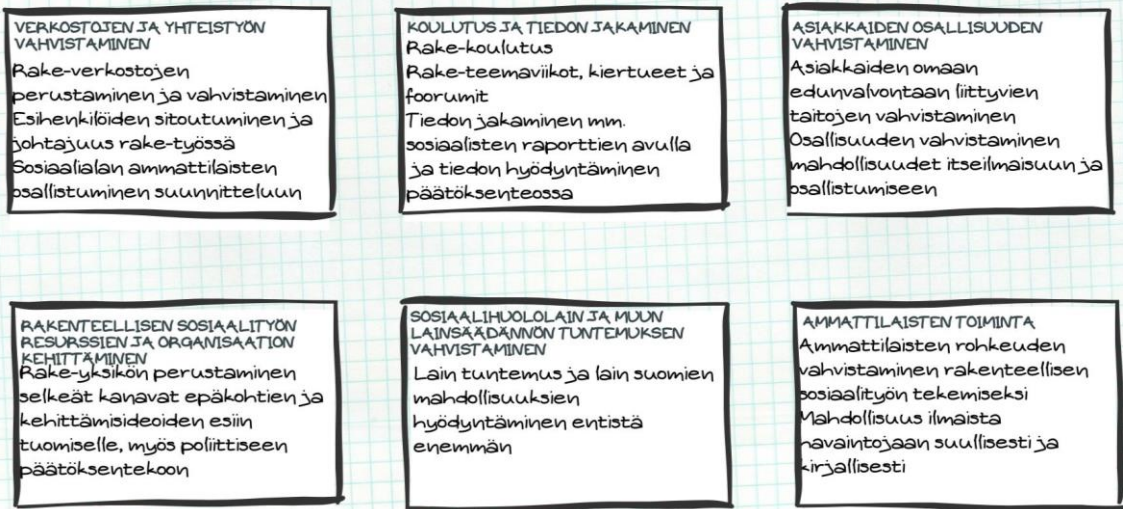 VERKOSTOJEN JA YHTEISTYÖN
VAHVISTAMINEN
Rake-verkostojen
perustaminen ja vahvistaminen
Esihenkilöiden sitoutuminen ja
johtajuus rake-työssä
Sosiaalialan ammattilaisten
osallistuminen suunnitteluun
KOULUTUS JA TIEDON JAKAMINEN
Rake-koulutus
Rake-teemaviikot, kiertueet ja
foorumit
Tiedon jakaminen mm.
sosiaalisten raporttien avulla
ja tiedon hyödyntäminen
päätöksenteossa
ASIAKKAIDEN OSALLISUUDEN
VAHVISTAMINEN
Asiakkaiden omaan
edunvalvontaan liittyvien
taitojen vahvistaminen
Osallisuuden vahvistaminen
mahdollisuudet itseilmaisuun ja
osallistumiseen
RAKENTEELLISEN SOSIAALITYÖN
RESURSSIEN JA ORGANISAATION
KEHITTÄMINEN
Rake-yksikön perustaminen
selkeät kanavat epäkohtien ja
kehittämisideoiden esiin
tuomiselle, myös poliittiseen
päätöksentekoon
SOSIAALIHUOLOLAIN JA MUUN
LAINSÄÄDÄNNÖN TUNTEMUKSEN
VAHVISTAMINEN
Lain tuntemus ja lain suomien
mahdollisuuksien
hyödyntäminen entistä
enemmän
AMMATTILAISTEN TOIMINTA
Ammattilaisten rohkeuden
vahvistaminen rakenteellisen
sosiaalityön tekemiseksi
Mahdollisuus ilmaista
havaintojaan suullisesti ja
kirjallisesti